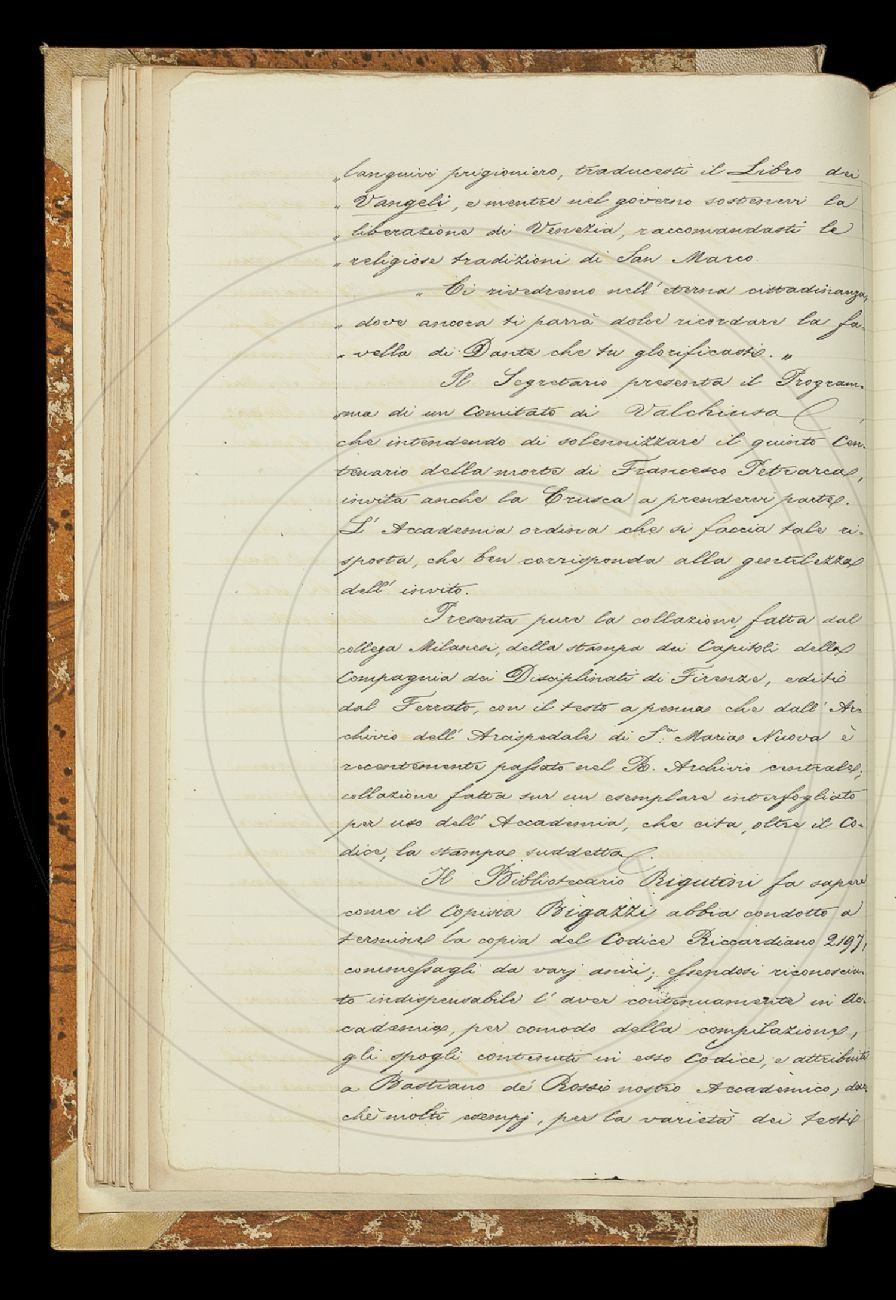 „ languivi prigioniero, traducesti il Libro dei
„ Vangeli, e mentre nel governo sostenevi la
„ liberazione di Venezia, raccomandasti le
„ religiose tradizioni di San Marco.
„ Ci rivedremo nell' eterna cittadinanza,
„ dove ancora ti parrà dolce ricordare la fa-
„ vella di Dante che tu glorificasti. „
Il Segretario presenta il Program-
ma di un Comitato di Valchiusa
che intendendo di solennizzare il quinto Cen-
tenario della morte di Francesco Petrarca,
invita anche la Crusca a prendervi parte.
L' Accademia ordina che si faccia tale ri-
sposta, che ben corrisponda alla gentilezza
dell' invito.
Presenta pure la collazione, fatta dal
collega Milanesi, della stampa dei Capitoli della
Compagnia dei Disciplinati di Firenze, editi
dal Ferrato, con il testo a penna che dall' Ar-
chivio dell' Arcispedale di S.ª Maria Nuova è
recentemente passato nel R. Archivio centrale;
collazione fatta sur un esemplare interfogliato
per uso dell' Accademia, che cita, oltre il Co-
dice, la stampa suddetta.
Il Bibliotecario Rigutini fa sapere
come il Copista Bigazzi abbia condotto a
termine la copia del Codice Riccardiano 2197,
commessagli da varj anni; essendosi riconosciu-
to indispensabile l' aver continuamente in Ac-
cademia, per comodo della compilazione,
gli spogli contenuti in esso Codice, e attribuiti
a Bastiano de' Rossi nostro Accademico; dac-
chè molti esempj, per la varietà dei testi